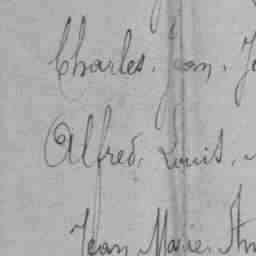 Charles. Jean. J
Alfred, Louis,
Jean Marie. An